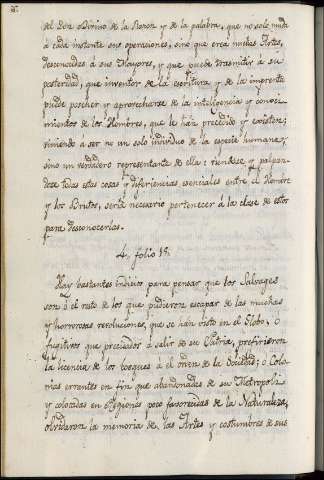 del Don Divino de la Razon y de la palabra, que no solo muda
á cada instante sus operaciones, sino que crea nuevas Artes,
desconocidas á sus Mayores, y que puede trasmitir á su
posteridad, que inventor de la escritura y de la imprenta
puede poseher y aprovecharse de la inteligencia y conoci
mientos de los Hombres, que le han precedido y existen;
viniendo á ser no un solo individuo de la especie humana,
sino un verdadero representante de ella: viendose y palpan-
dose todas estas cosas y diferiencias esenciales entre el Hombre
y los Brutos, sería necesario pertenecer á la clase de estos
para desconocerlas.
4, folio 18.
Hay bastantes indicios para pensar que los Salvages
son ó el resto de los que pudieron escapar de las muchas
y horrorosas revoluciones, que se han visto en el Globo; ó
fugitivos que precisados á salir de su Patria, prefirieron
la licencia de los bosques á el orden de la Sociedad; ó Colo
nias errantes en fin que abandonadas de su Metropoli
y colocadas en Regiones poco favorecidas de la Naturaleza,
olvidaron la memoria de las Artes y costumbres de sus